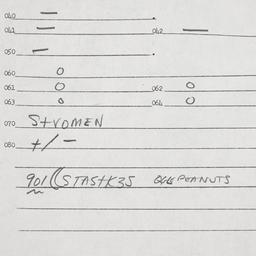 040 —
041 — 042 —
050 —
060 0
061 0 062 0
063 0 064 0
070 STVOMEN
080 +/-
901 PEANUTS